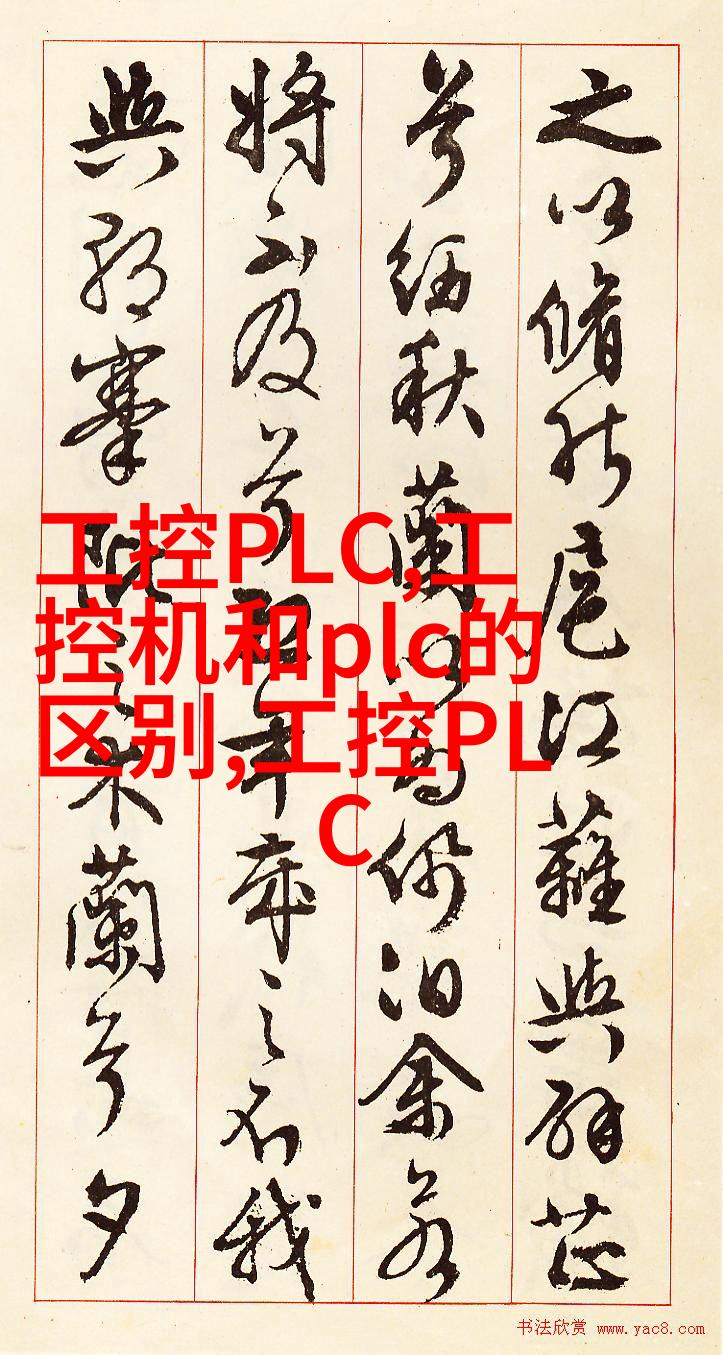 之以脩能扈江蘺與辟芷
兮紉秋蘭以為佩汩余若
將不及兮恐年歲之不我
與朝搴阰之木蘭兮夕
工控PLC,工
控机和plc的
区别,工控PL
C
书法欣赏 www.yac8.com